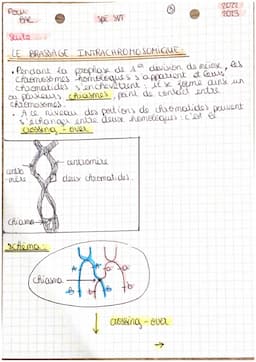 spé SVT
2022
2023
Suite...
LE BRASSAGE INTRACHROMOSOMIQUE.
• Pendant la prophase de 1e division de méiose, les
chromosomes homologues s'apparient et leurs
chromatides s'enchevêtrent ; il se forme ainsi un
ou plusieurs chiasmes, point de contact entre
chromosomes.
• A ce niveau des portions de chromatides peuvent
s'échanger entre deux homologues : c'est le
crossing-over
centromère
deux chromatides.
chiasma
schéma :
chiasma
a a
b b
crossing-over